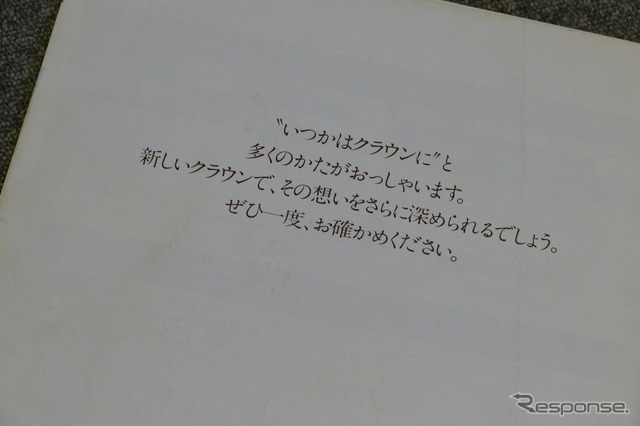 〝いつかはクラウンに〟と
多くのかたがおっしゃいます。
新しいクラウンで、その想いをさらに深められるでしょう。
ぜひ一度、お確かめください。
Response.